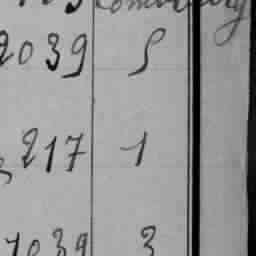 2039 5
217 1
1039 3